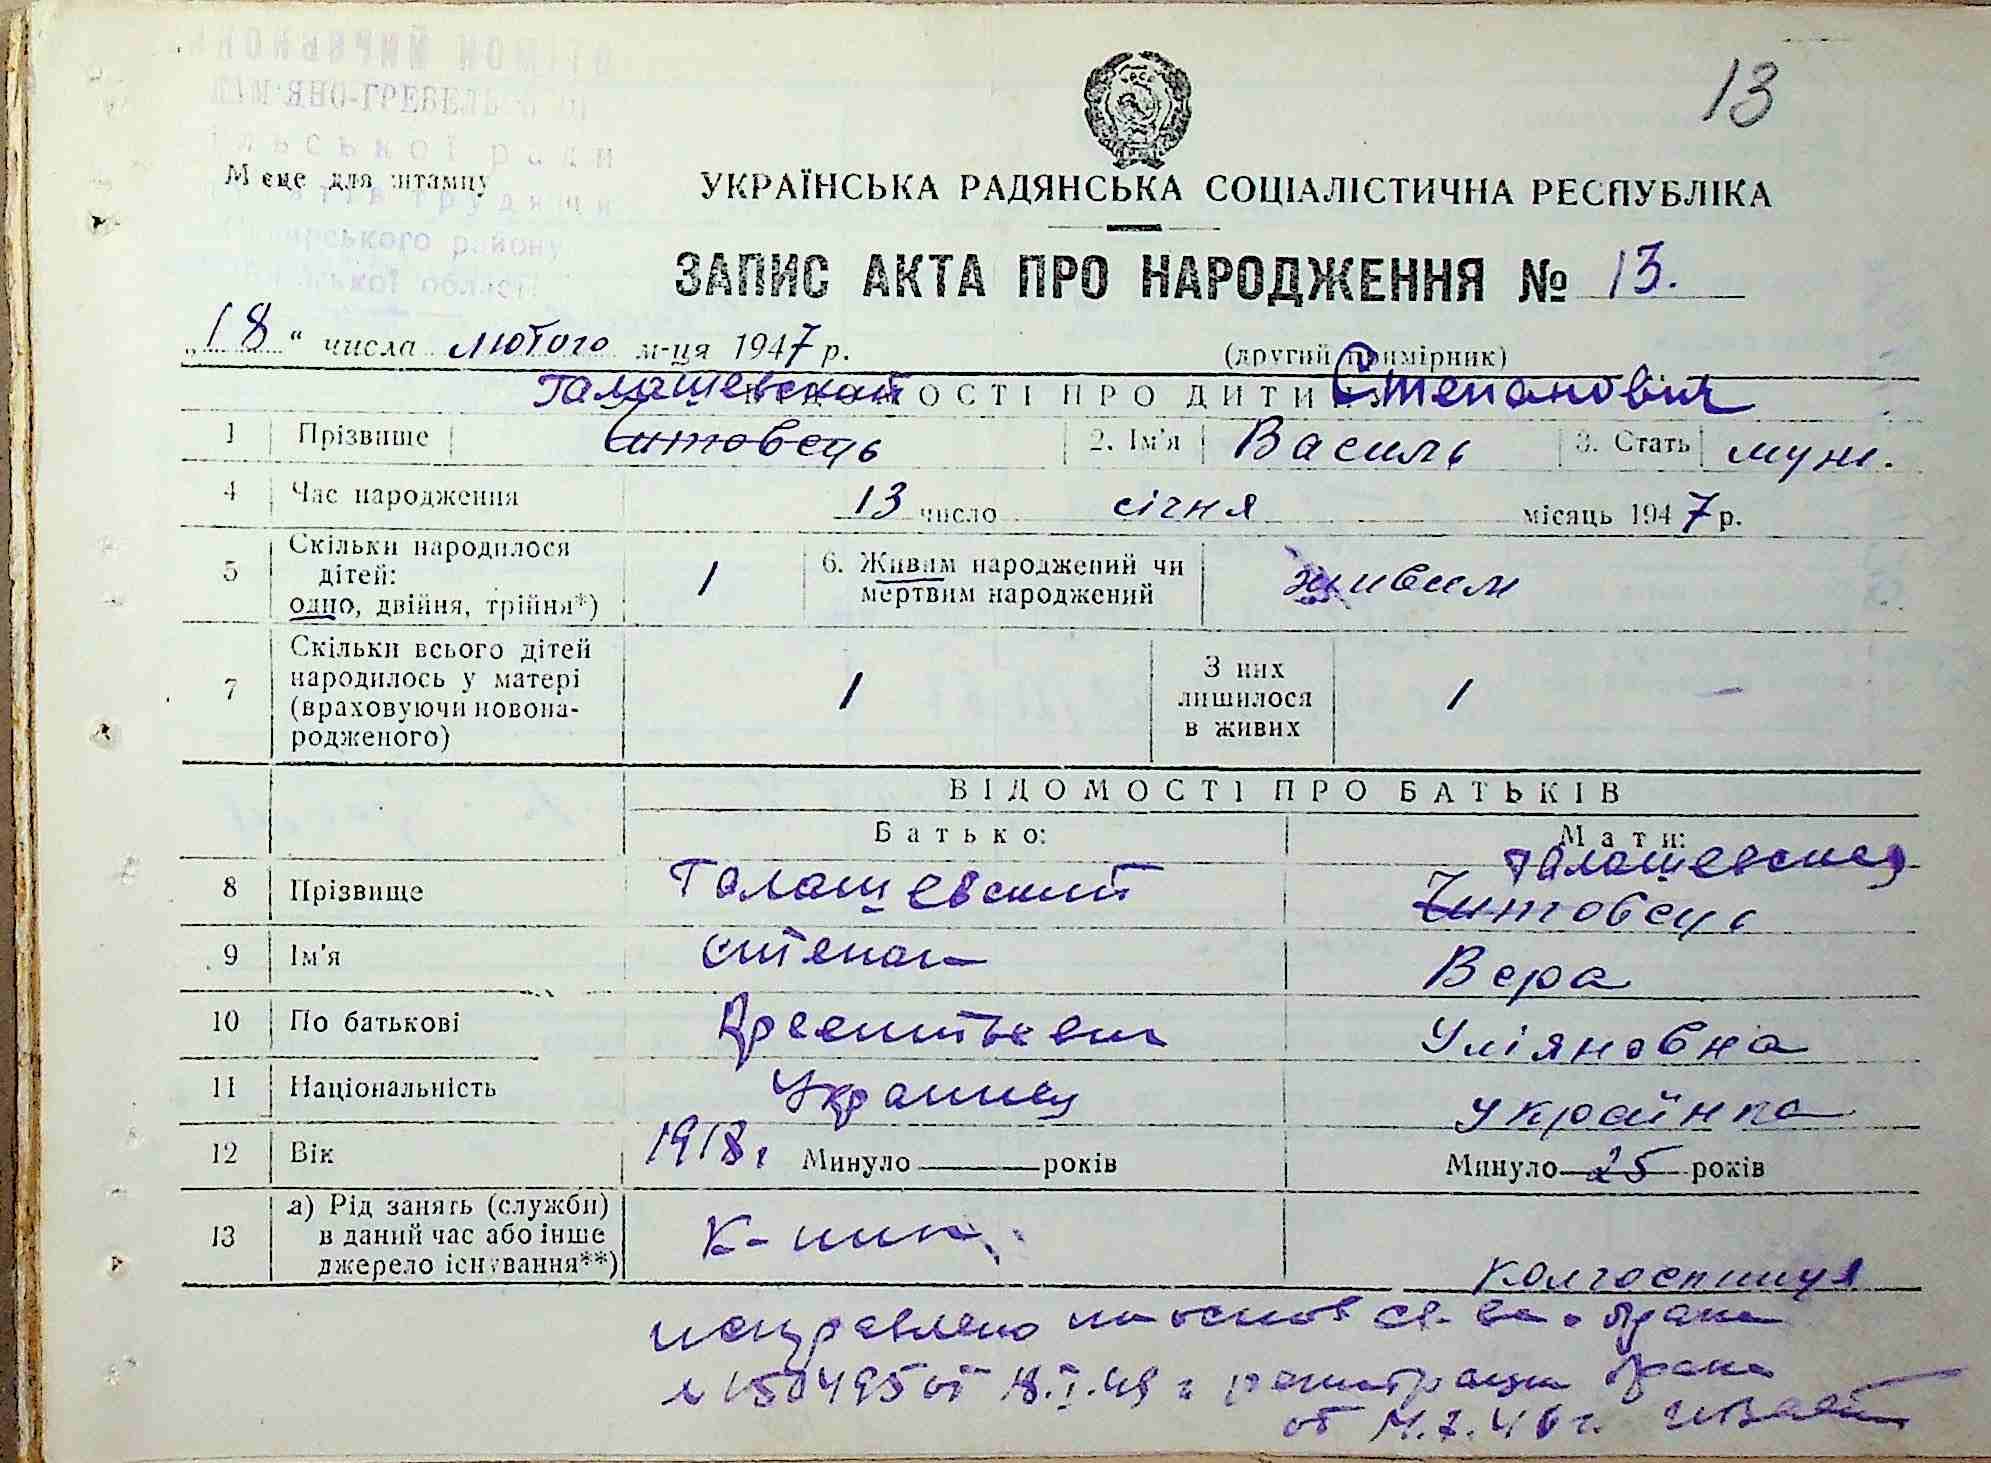 КАМ'ЯНО-ГРЕБЕЛЬ
сільської ради
Місце для штампу
району
області
13
УКРАЇНСЬКА РАДЯНСЬКА СОЦІАЛІСТИЧНА РЕСПУБЛІКА
ЗАПИС АКТА ПРО НАРОДЖЕННЯ № 13.
„18“ числа лютого м-ця 1947 р. (другий примірник)
Галашевский Степанович
ВІДОМОСТІ ПРО ДИТИНУ
1 Прізвище Читовець 2. Ім'я Василь 3. Стать муж.
4 Час народження 13 число січня місяць 1947 р.
5 Скільки народилося дітей: одно, двійня, трійня*) 1 6. Живим народжений чи мертвим народжений живим
7 Скільки всього дітей народилось у матері (враховуючи новонародженого) 1 З них лишилося в живих 1
ВІДОМОСТІ ПРО БАТЬКІВ
Батько: Мати:
Галашевская
8 Прізвище Галашевский Читовець
9 Ім'я Степан Вера
10 По батькові Уліяновна
11 Національність Украинец українка
12 Вік 1918 г Минуло — років Минуло 25 років
13 а) Рід занять (служби) в даний час або інше джерело існування**) К-ник колгоспниця
исправлено на основ св-ва о браке
№ 150495 от 18.I.49 г регистрации брака
от